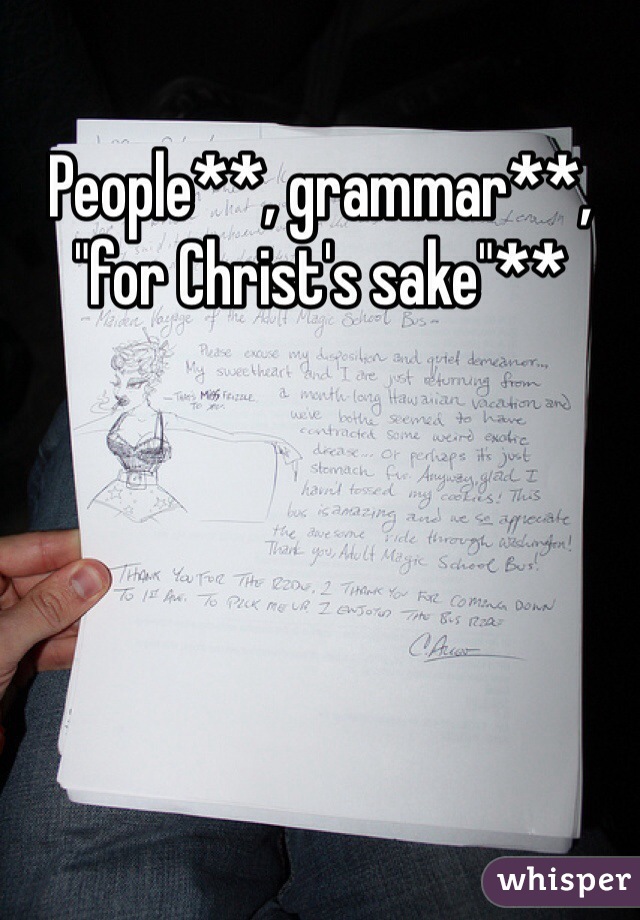 People**, grammar**,
"for Christ's sake"**
- Maiden Voyage of the Adult Magic School Bus -
Please excuse my disposition and quiet demeanor...
My sweetheart and I are just returning from
- THAT'S MISS FRIZZLE
TO YOU.
a month-long Hawaiian vacation and
we've bothe seemed to have
contracted some weird exotic
disease... or perhaps it's just
stomach flu. Anyway, glad I
havn't tossed my cookies! This
bus is amazing and we so appreciate
the awesome ride through Washington!
Thank you, Adult Magic School Bus!
THANK YOU FOR THE RIDE, I THANK YOU FOR COMING DOWN
TO 1ST AVE. TO PICK ME UP I ENJOYED THE BUS RIDE
C.
whisper